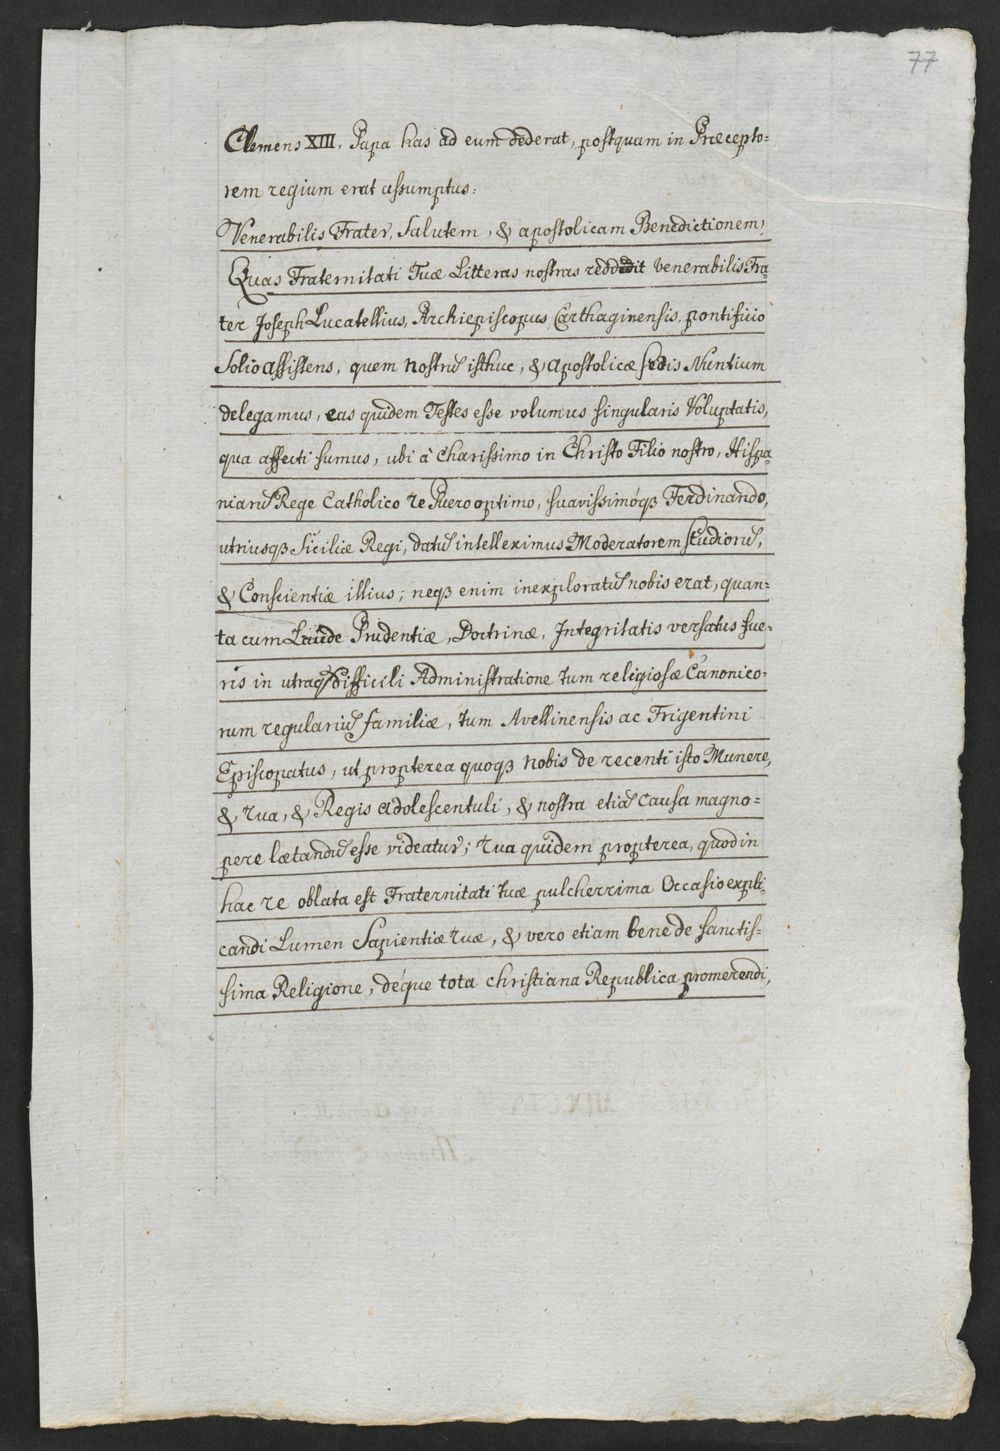 77
Clemens XIII. Papa has ad eum dederat, postquam in Præcepto=
rem regium erat assumptus:
Venerabilis Frater, Salutem, & apostolicam Benedictionem,
Quas Fraternitati Tuæ Litteras nostras reddidit Venerabilis Fra=
ter Joseph Lucatellius, Archiepiscopus Carthaginensis, pontificio
Solio assistens, quem nostrū isthuc, & Apostolicæ sedis Nuntium
delegamus, eas quidem Testes esse volumus singularis Voluptatis,
qua affecti sumus, ubi à Charissimo in Christo Filio nostro, Hispa=
niarū Rege Catholico te Puero optimo, suavissimóqȝ Ferdinando,
utriusqȝ Siciliæ Regi, datū intelleximus Moderatorem studiorū,
& Conscientiæ illius; neqȝ enim inexploratū nobis erat, quan=
ta cum Laude Prudentiæ, Doctrinæ, Integritatis versatus fue=
ris in utraqȝ difficili Administratione tum religiosæ Canonico=
rum regulariū familiæ, tum Avellinensis ac Frigentini
Episcopatus, ut propterea quoqȝ nobis de recenti isto Munere,
& tua, & Regis adolescentuli, & nostra etiā causa magno=
pere lætandū esse videatur; tua quidem propterea, quod in
hac re oblata est Fraternitati tuæ pulcherrima Occasio expli=
candi Lumen Sapientiæ tuæ, & vero etiam bene de sanctis=
sima Religione, déque tota christiana Republica promerendi,